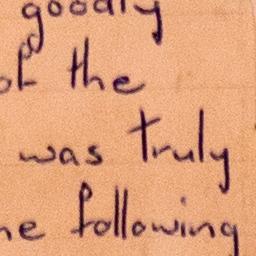 goodly
of the
was truly
he following